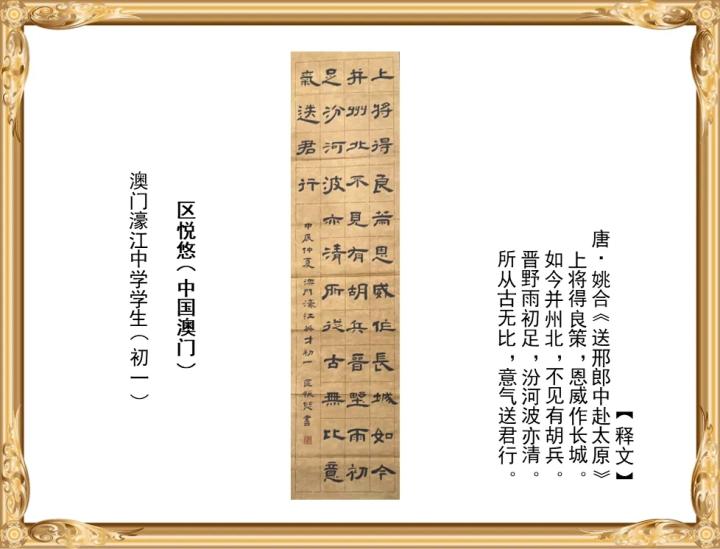 【释文】
唐·姚合《送邢郎中赴太原》
上将得良策，恩威作长城。
如今并州北，不见有胡兵。
晋野雨初足，汾河波亦清。
所从古无比，意气送君行。
上將得良策恩威作長城如今
并州北不見有胡兵晉野雨初
足汾河波亦清所從古無比意
氣送君行
甲辰仲夏 澳門濠江英才初一 區悅悠書
区悦悠（中国澳门）
澳门濠江中学学生（初一）